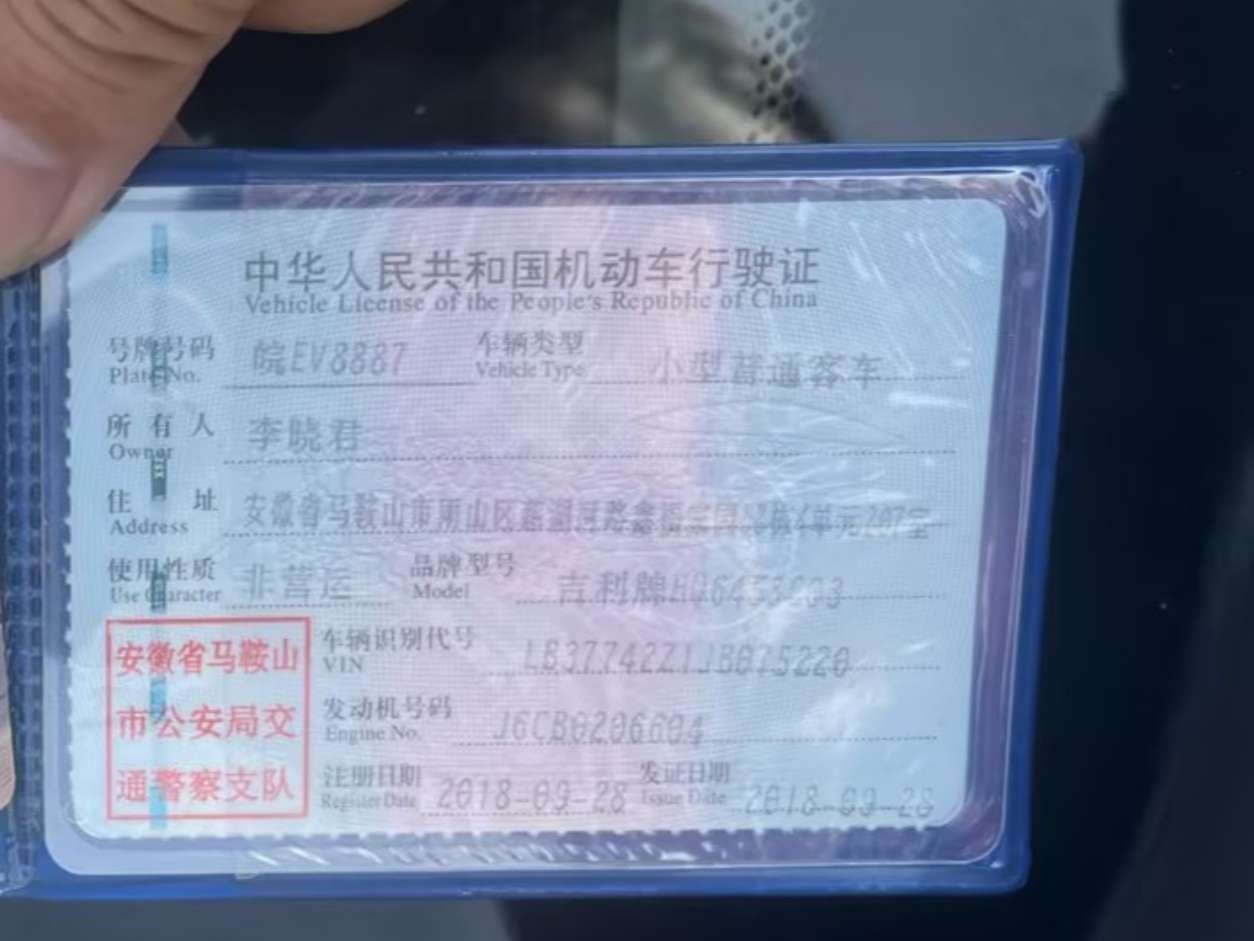 中华人民共和国机动车行驶证
Vehicle License of the People's Republic of China
号牌号码 皖EV8887 车辆类型 小型普通客车
Plate No. Vehicle Type
所有人 李晓君
Owner
住址 安徽省马鞍山市雨山区慈湖河路
Address
使用性质 非营运 品牌型号 吉利牌
Use Character Model
安徽省马鞍山
市公安局交
通警察支队
车辆识别代号 LB37742Z1JB075220
VIN
发动机号码 J6CB0206604
Engine No.
注册日期 2018-09-28 发证日期 2018-09-28
Register Date Issue Date